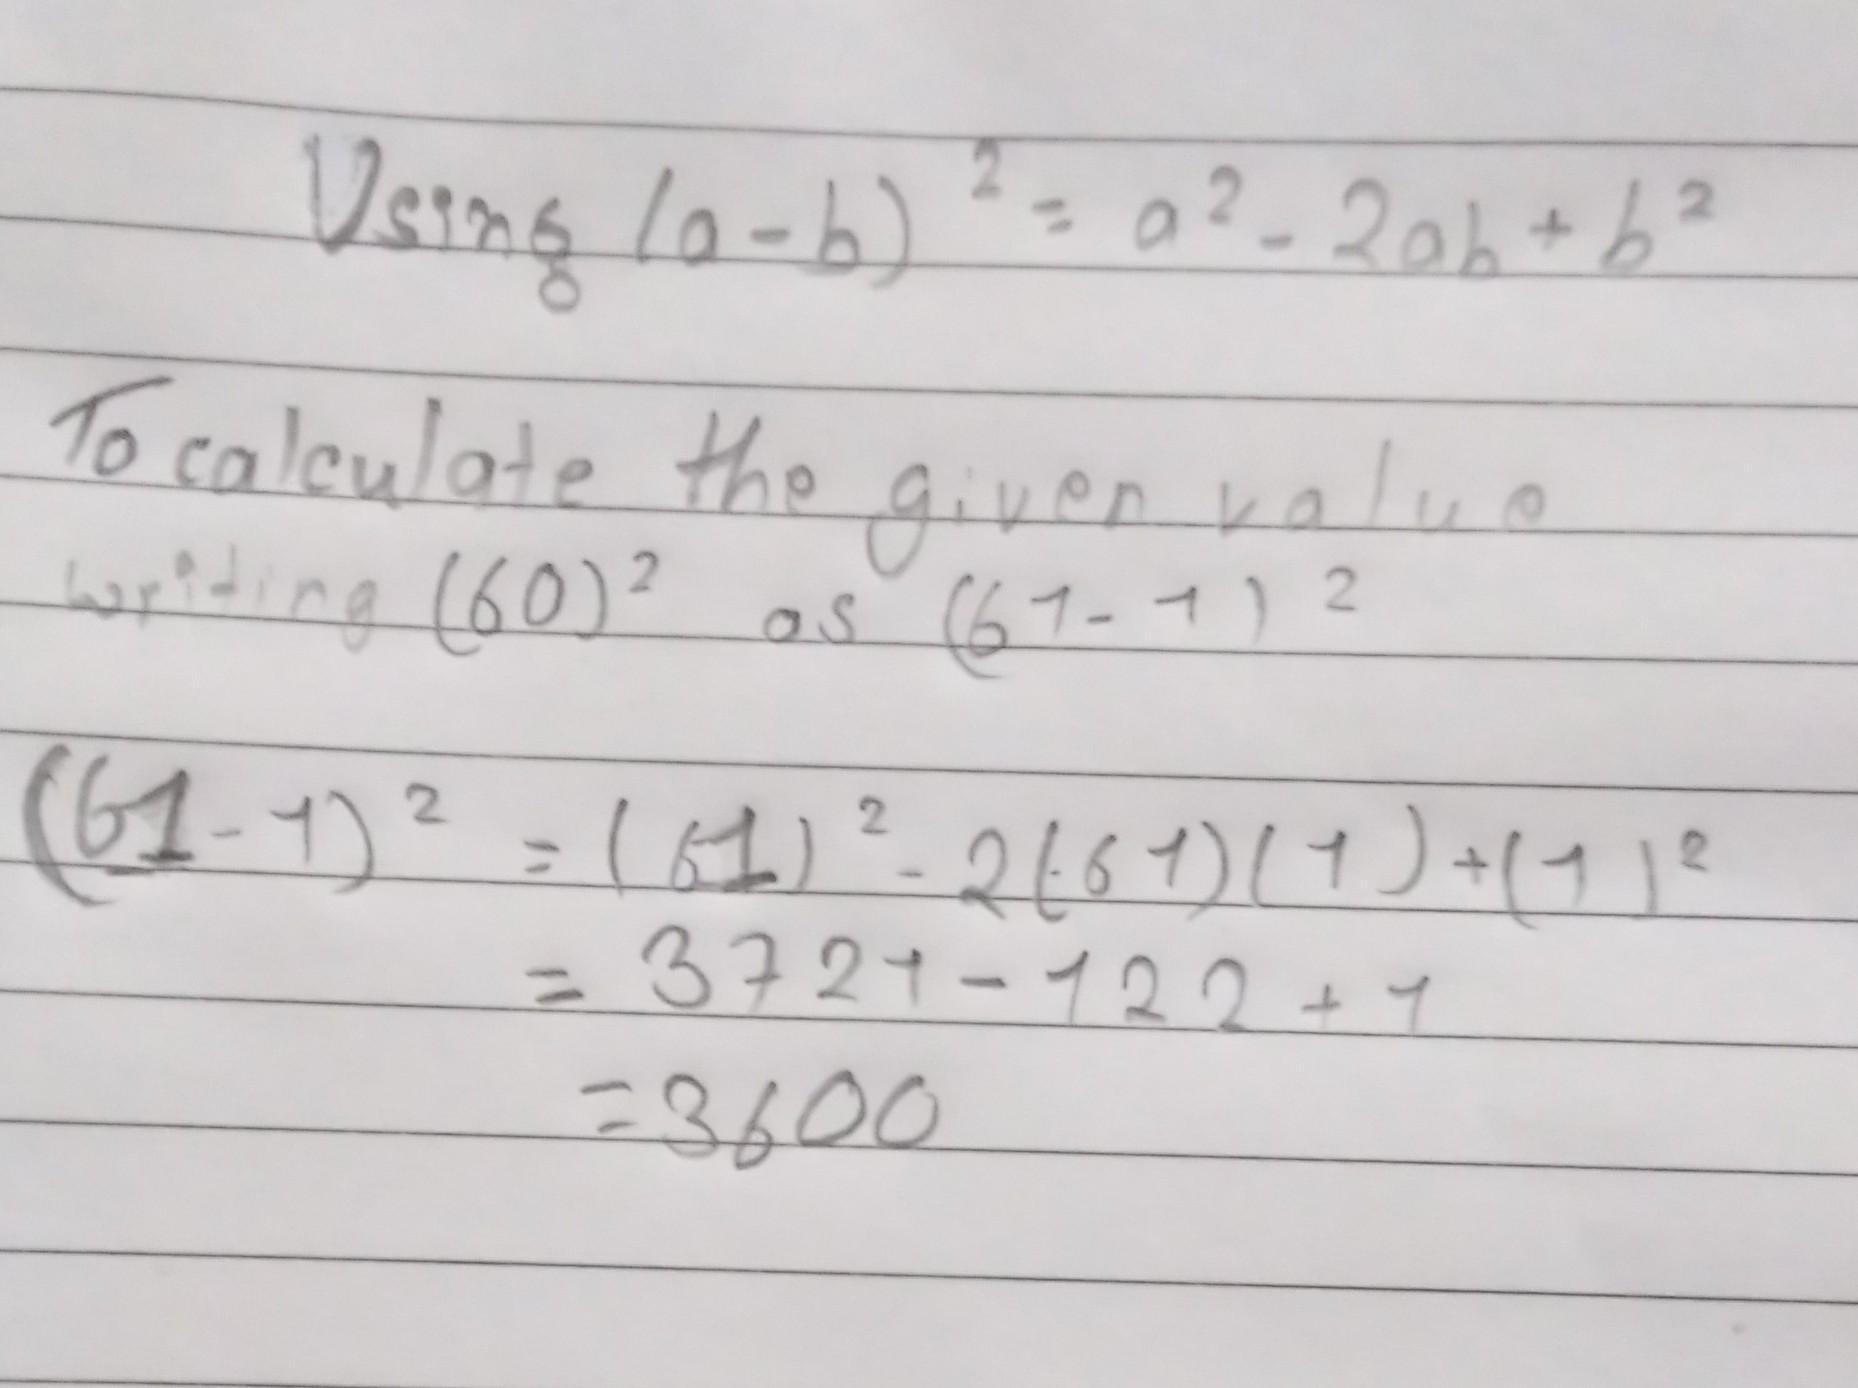 Using (a-b)² = a² - 2ab + b²
To calculate the given value
writing (60)² as (61-1)²
(61-1)² = (61)² - 2(61)(1) + (1)²
= 3721 - 122 + 1
= 3600